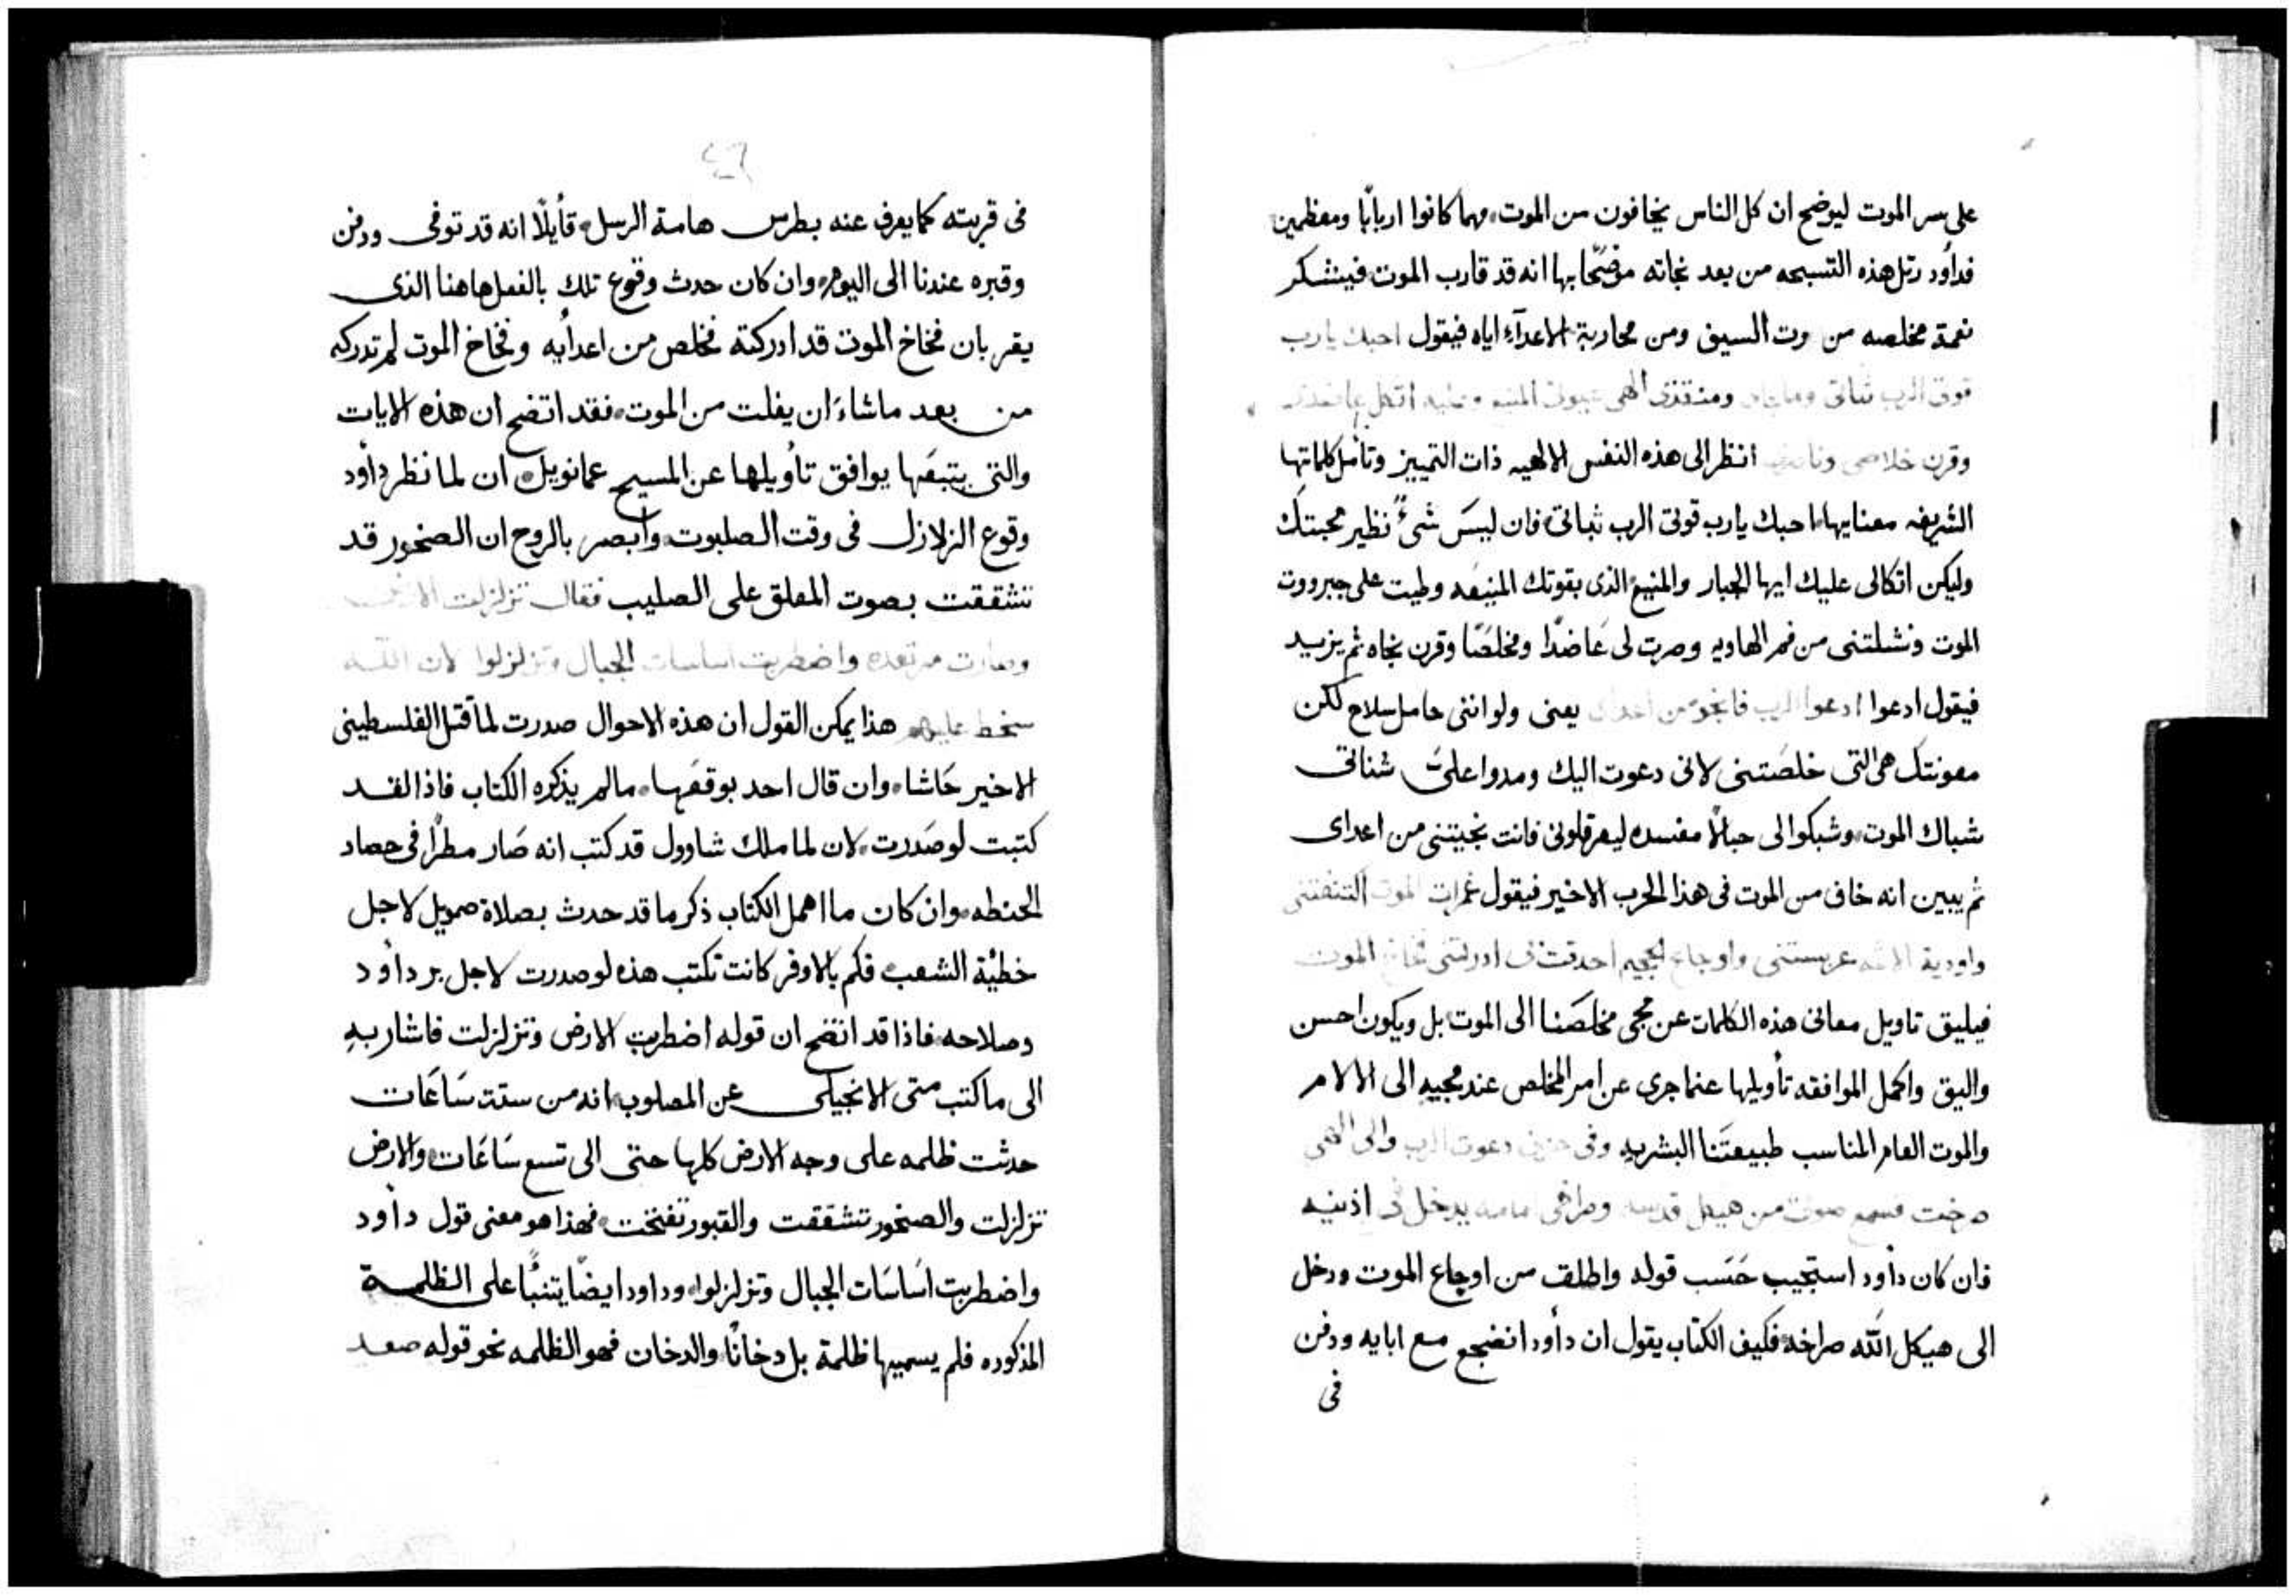 على سر الموت ليوضح ان كل الناس يخافون من الموت، مهما كانوا اربابًا ومعظمين
فداوُد رتل هذه التسبحه من بعد نجاته موضحًا بها انه قد قارب الموت فيتشكر
نعمة مخلصه من وت السيف ومن محاربة الاعدآء اياه فيقول احبك يا رب
قوتى الرب ثباتى ومنقذى الهى عونى وعليه اتكل
وقرن خلاصى انظر الى هذه النفس الالهيه ذات التمييز وتأمل كلماتها
الشريفه معنايها، احبك يا رب قوتى الرب ثباتى، فان ليسَ شىءً نظير محبتك
وليكن اتكالى عليك ايها الجبار والمنيع الذى بقوتك المنيعَه وطيت على جبرووت
الموت ونشلتنى من فم الهاويه وصرت لى عَاضدًا ومخلصًا وقرن نجاه ثم يزيد
فيقول ادعوا ادعوا الرب فانجو من اعداى يعنى ولو اننى حامل سلاح لكن
معونتك هى التى خلصَتنى لانى دعوت اليك ومدوا علىَّ شناتى
شباك الموت، وشبكوا لى حبالًا مفسده ليعرقلونى فانت نجيتنى من اعداى
ثم يبين انه خاف من الموت فى هذا الحرب الاخير فيقول غمرات الموت اكتنفتنى
واودية الاثم واوجاع الجحيم احدقت بى ادركتنى فخاخ الموت
فيليق تاويل معانى هذه الكلمات عن مجى مخلصَنا الى الموت بل ويكون احسن
واليق واكمل الموافقه تأويلها عنما جرى عن امر المخلص عند مجيه الى الالام
والموت العام المناسب طبيعتَنا البشريه وفى حزنى دعوت الرب والى الهى
صرخت فسمع صوتى من هيكل قدسه وصراخى امامه يدخل فى اذنيه
فان كان داوُد استجيب حَسَب قوله واطلق من اوجاع الموت ودخل
الى هيكل الله صراخه، فكيف الكتاب يقول ان داوُد انضجع مع ابايه ودفن
فى
٤٦
فى قريته كما يعرف عنه بطرس هامة الرسل، قأيلًا انه قد توفى ودفن
وقبره عندنا الى اليوم، وان كان حدث وقوع تلك بالفعل هاهنا الذى
يقر بان فخاخ الموت قد ادركته فخلص من اعدأيه وفخاخ الموت لم تدركه
من بعد ماشاءَ ان يفلت من الموت، فقد اتضح ان هذه الايات
والتى يتبعَها يوافق تأويلها عن المسيح عمانويل، ان لما نظر داوُد
وقوع الزلازل فى وقت الصلبوت، وأبصر بالروح ان الصخور قد
تشققت بصوت المعلق على الصليب فقال تزلزلت الارض
وصارت مرتعده واضطربت اساسات الجبال وتزلزلوا لان الله
سخط عليهم هذا يمكن القول ان هذه الاحوال صدرت لما قتل الفلسطينى
الاخير حَاشا، وان قال احد بوقفعَها، مالم يذكره الكتاب فاذا لقد
كتبت لو صَدرت، لان لما ملك شاوول قد كتب انه صَار مطرًا فى حصاد
الحنطه، وان كان ما اهمل الكتاب ذكر ما قد حدث بصلاة صمويل لاجل
خطيْة الشعب، فكم بالاوفر كانت تكتب هذه لو صدرت لاجل بر داوُد
وصلاحه، فاذا قد اتضح ان قوله اضطربت الارض وتزلزلت فاشار به
الى ما كتب متى الانجيلى عن المصلوب، انه من ستت سَاعَات
حدثت ظلمه على وجه الارض كلها حتى الى تسع سَاعَات، والارض
تزلزلت والصخور تشققت والقبور تفتخت، فهذا هو معنى قول داوُد
واضطربت اسَاسَات الجبال وتزلزلوا، وداود ايضًا يتنبًّا على الظلمة
المذكوره فلم يسميها ظلمة بل دخانًا، والدخان فهو الظلمه نحو قوله صعد